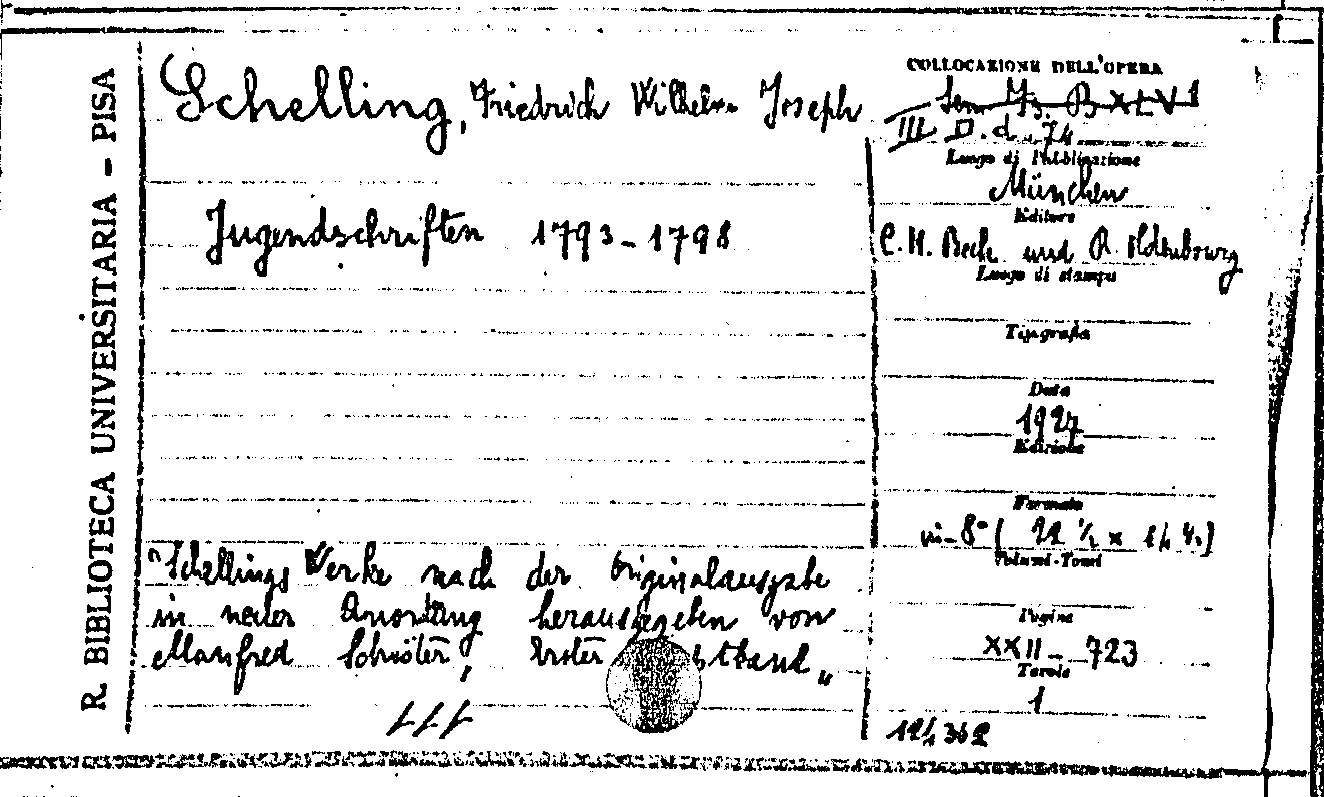 R. BIBLIOTECA UNIVERSITARIA - PISA
Schelling, Friedrich Wilhelm Joseph
Jugendschriften 1793-1798
"Schellings Werke nach der Originalausgabe
in neuer Anordnung herausgegeben von
Manfred Schröter, Erster
COLLOCAZIONE DELL'OPERA
III D. d. 74
Luogo di Pubblicazione
München
Editore
C. H. Beck und R. Oldenbourg
Luogo di stampa
Tipografia
Data
1927
Edizione
Formato
in-8° (22 ½ x 14 4.)
Volumi-Tomi
Pagine
XXII - 723
Tavole
1